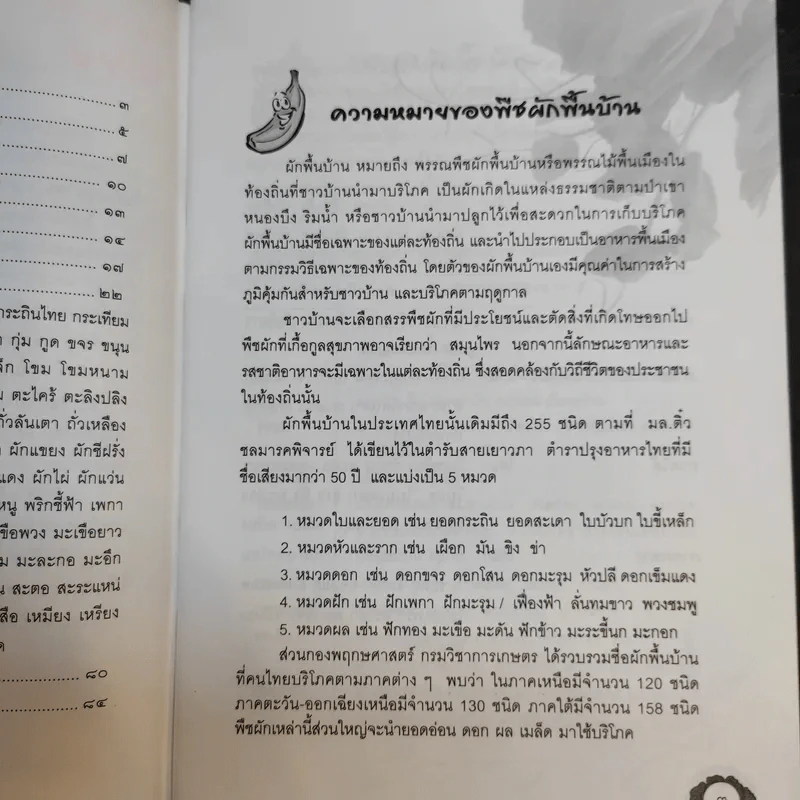 ๓
๕
๗
๑๐
๑๓
๑๔
๑๗
๒๒
กระถินไทย กระเทียม
กุ่ม กูด ขจร ขนุน
โขม โขมหนาม
ตะไคร้ ตะลิงปลิง
ถั่วลันเตา ถั่วเหลือง
ผักแขยง ผักชีฝรั่ง
แดง ผักไผ่ ผักแว่น
พริกชี้ฟ้า เพกา
มะเขือยาว
มะละกอ มะอึก
สะตอ สะระแหน่
เหมียง เหรียง
๘๐
๘๔
ความหมายของพืชผักพื้นบ้าน
ผักพื้นบ้าน หมายถึง พรรณพืชผักพื้นบ้านหรือพรรณไม้พื้นเมืองใน
ท้องถิ่นที่ชาวบ้านนำมาบริโภค เป็นผักเกิดในแหล่งธรรมชาติตามป่าเขา
หนองบึง ริมน้ำ หรือชาวบ้านนำมาปลูกไว้เพื่อสะดวกในการเก็บบริโภค
ผักพื้นบ้านมีชื่อเฉพาะของแต่ละท้องถิ่น และนำไปประกอบเป็นอาหารพื้นเมือง
ตามกรรมวิธีเฉพาะของท้องถิ่น โดยตัวของผักพื้นบ้านเองมีคุณค่าในการสร้าง
ภูมิคุ้มกันสำหรับชาวบ้าน และบริโภคตามฤดูกาล
ชาวบ้านจะเลือกสรรพืชผักที่มีประโยชน์และตัดสิ่งที่เกิดโทษออกไป
พืชผักที่เกื้อกูลสุขภาพอาจเรียกว่า สมุนไพร นอกจากนี้ลักษณะอาหารและ
รสชาติอาหารจะมีเฉพาะในแต่ละท้องถิ่น ซึ่งสอดคล้องกับวิถีชีวิตของประชาชน
ในท้องถิ่นนั้น
ผักพื้นบ้านในประเทศไทยนั้นเดิมมีถึง 255 ชนิด ตามที่ มล.ติ๋ว
ชลมารคพิจารย์ ได้เขียนไว้ในตำรับสายเยาวภา ตำราปรุงอาหารไทยที่มี
ชื่อเสียงมากว่า 50 ปี และแบ่งเป็น 5 หมวด
1. หมวดใบและยอด เช่น ยอดกระถิน ยอดสะเดา ใบบัวบก ใบขี้เหล็ก
2. หมวดหัวและราก เช่น เผือก มัน ขิง ข่า
3. หมวดดอก เช่น ดอกขจร ดอกโสน ดอกมะรุม หัวปลี ดอกเข็มแดง
4. หมวดฝัก เช่น ฝักเพกา ฝักมะรุม / เฟื่องฟ้า ลั่นทมขาว พวงชมพู
5. หมวดผล เช่น ฟักทอง มะเขือ มะดัน ฟักข้าว มะระขี้นก มะกอก
ส่วนกองพฤกษศาสตร์ กรมวิชาการเกษตร ได้รวบรวมชื่อผักพื้นบ้าน
ที่คนไทยบริโภคตามภาคต่าง ๆ พบว่า ในภาคเหนือมีจำนวน 120 ชนิด
ภาคตะวัน-ออกเฉียงเหนือมีจำนวน 130 ชนิด ภาคใต้มีจำนวน 158 ชนิด
พืชผักเหล่านี้ส่วนใหญ่จะนำยอดอ่อน ดอก ผล เมล็ด มาใช้บริโภค